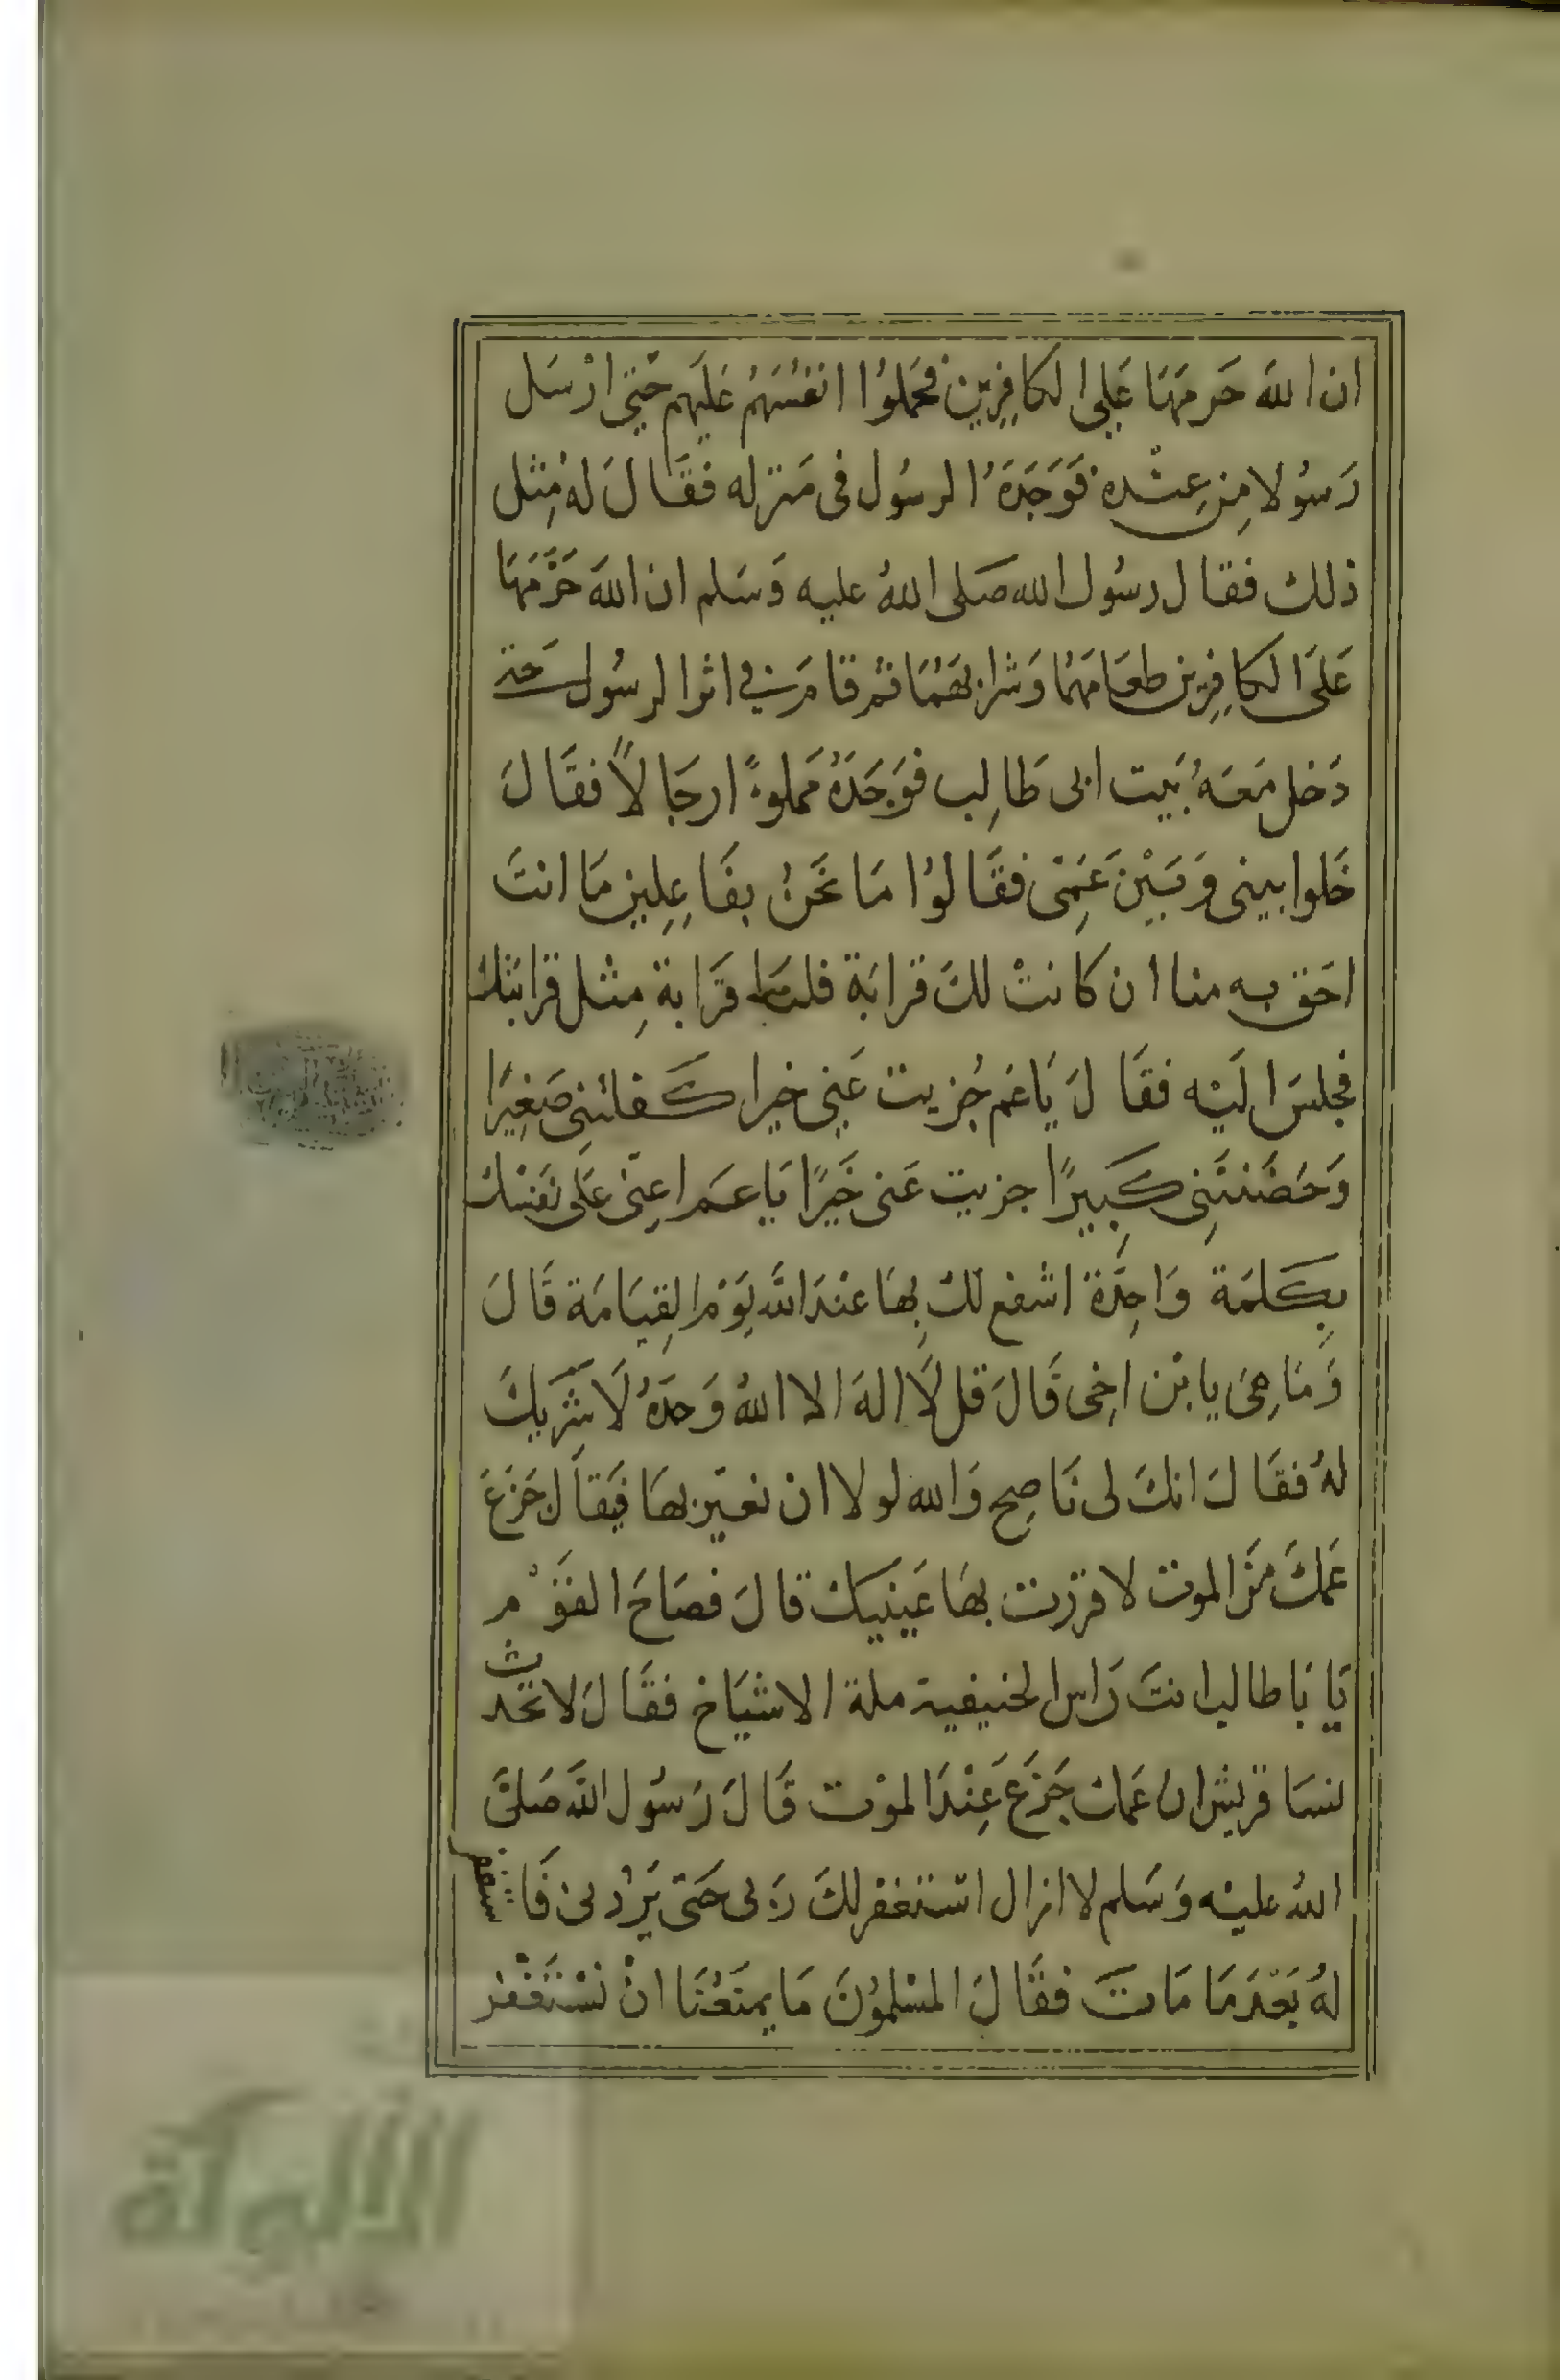 ان الله حَرمَهَا عَلي الكافِرِين فحَمَلوُا انفُسَهُم عَلَيهم حَتى ارْسَل
رَسوُلا مِن عِنْده فوَجَدَهُ الرسُول فى مَنزله فقَالَ لهُ مِثل
ذلك فقال رسُول الله صَلى اللهُ عليه وَسَلم ان اللهَ حَرَّمَهَا
عَلَى الكافِرِين طعَامهَا وَشرابهَا ثم قامَ في اثر الرسُول حَتى
دَخل مَعَهُ بَيت ابى طَالِب فوَجَدَهُ مَملوءً ارجَالاً فقَالَ
خَلوا بينى وَبَيْنَ عَمِّى فقَالوُا مَا نحَنُ بِفَاعِلِين مَا انتَ
احَق به منا ان كانتْ لكَ قرابَة فلنا قرَابة مِثل قرابَتك
فجَلسَ الَيْه فقَالَ يَا عَم جُزيت عَنِى خيرا كَفلتنِى صَغِيرًا
وَحَضَنتَنِى كَبِيرًا جزيت عَنى خَيرًا يَا عَم اعِنّى عَلى نَفسْك
بِكَلمَة وَاحِدَة اشفع لكَ بِهَا عنْدَ اللَّه يَوْم القِيَامَة قَالَ
وَمَا هِىَ يا بْن اخِى قَالَ قل لَا الهَ الا اللهُ وَحدَهُ لَا شَرِيكَ
لهُ فقَالَ انكَ لى نَاصِح وَالله لولا ان نعيّر بهَا فيَقَال جَزَعَ
عَمكَ مَن الموت لا قررت بهَا عَينيك قالَ فصَاحَ القوْم
يَا بَا طالب انتَ رَاس الحنيفية ملة الاشيَاخ فقَالَ لا تحَدث
نسَا قريش ان عَمك جَزعَ عِنْدَ الموْت قَالَ رَسوُل اللَّه صَلىَّ
اللهُ عليْه وَسَلم لا ازال اسْتَغفر لكَ رَبى حَتى يَرُدنى فَاستغفر
لهُ بَعْدَمَا مَاتَ فقَالَ المسْلموُنَ مَا يمنَعُنَا انْ نسْتَغْفر
الألوكة